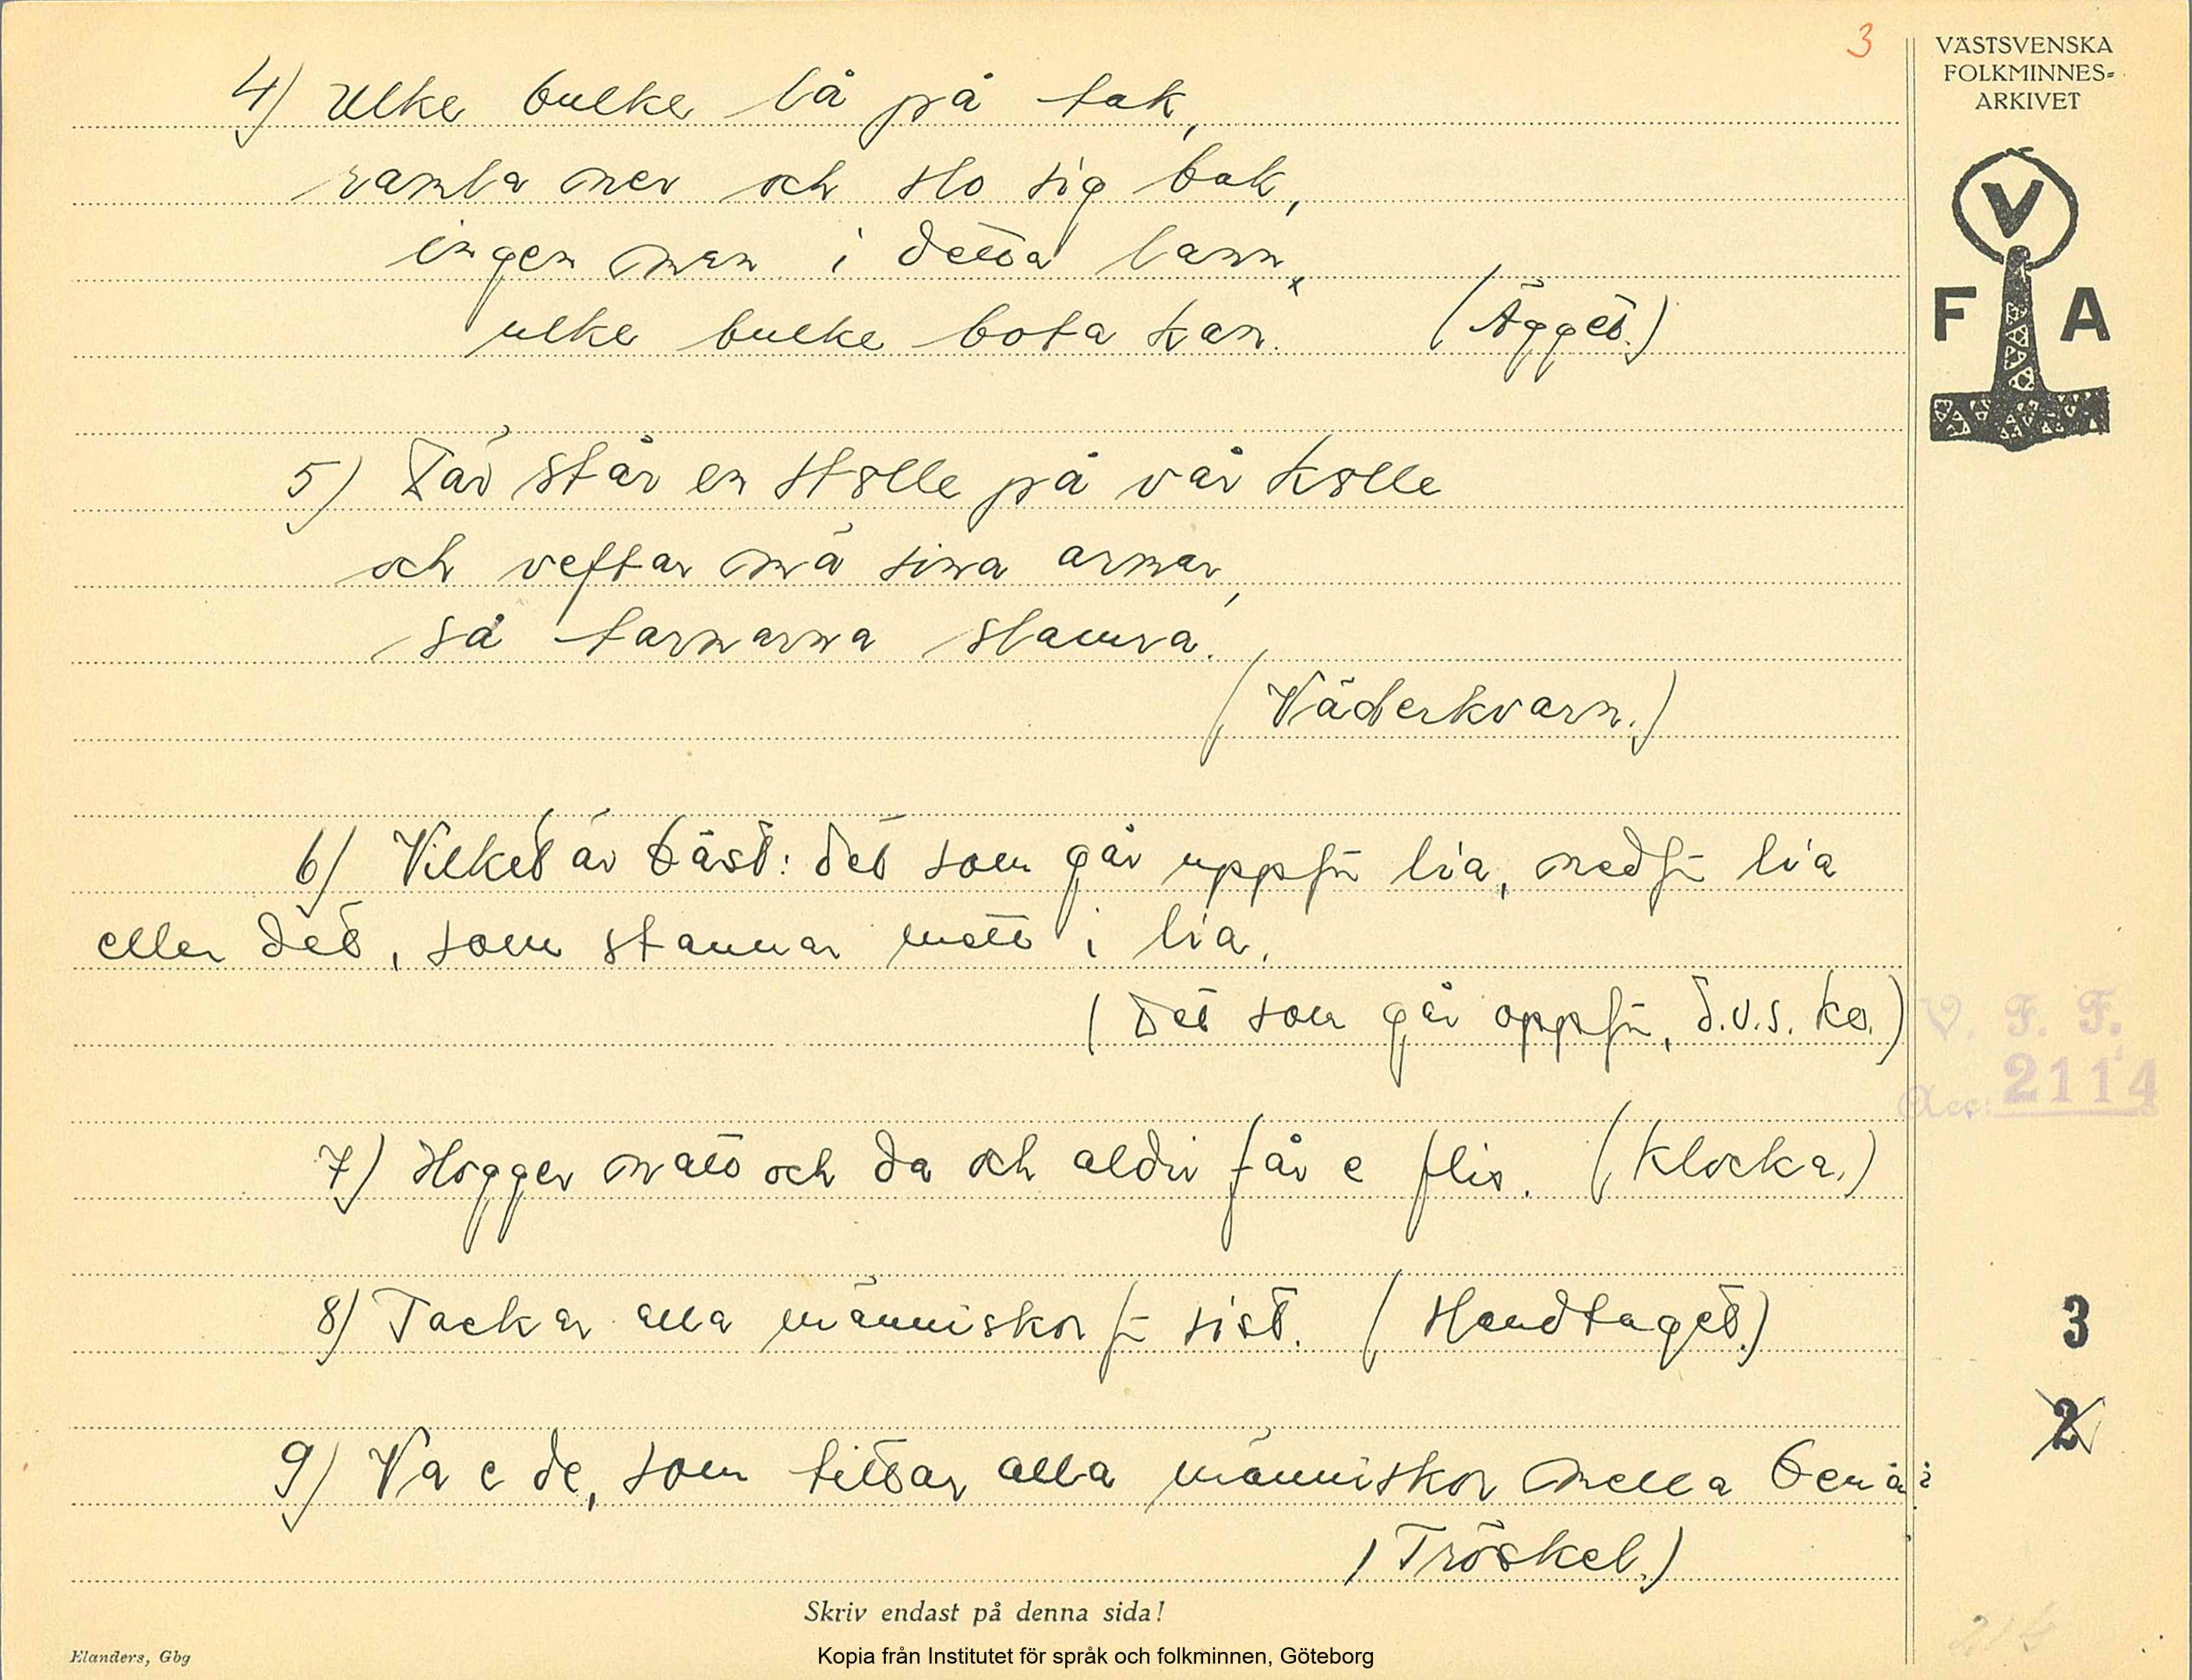 3
VÄSTSVENSKA
FOLKMINNES-
ARKIVET
V
F A
4) Ulke bulke lå på tak,
ramla ner och slo sig bak,
ingen man i detta lann,
ulke bulke bota kan. (Ägget.)
5) Där står en stolle på vår kolle
och veftar mä sina armar,
så tarmarna slamra.
(Väderkvarn.)
6) Vilket är bäst: det som går uppför lia, nedför lia
eller det, som stannar mett i lia.
(Det som går oppför, d.v.s. ko.)
V. F. F.
Acc: 2114
7) Hogger natt och da och aldri får e flis. (Klocka.)
8) Tackar alla människor för sist. (Handtaget.)
3
2
9) Va e de, som tittar alla människor mella bena?
(Tröskel.)
Skriv endast på denna sida!
Elanders, Gbg
Kopia från Institutet för språk och folkminnen, Göteborg